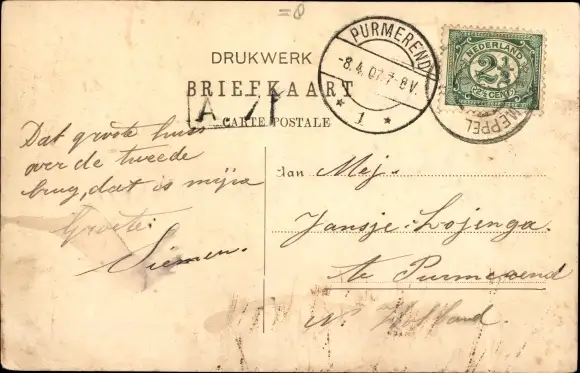 DRUKWERK
BRIEFKAART
CARTE POSTALE
A
PURMEREND
8.4.07. 7-8V.
* 1 *
NEDERLAND
2½
2½ CENT
MEPPEL
Dat groote huis
over de tweede
brug, dat is mijne
Groete:
Siemen.
Aan Mej.
Jansje Lojenga.
te Purmerend
N. Holland.